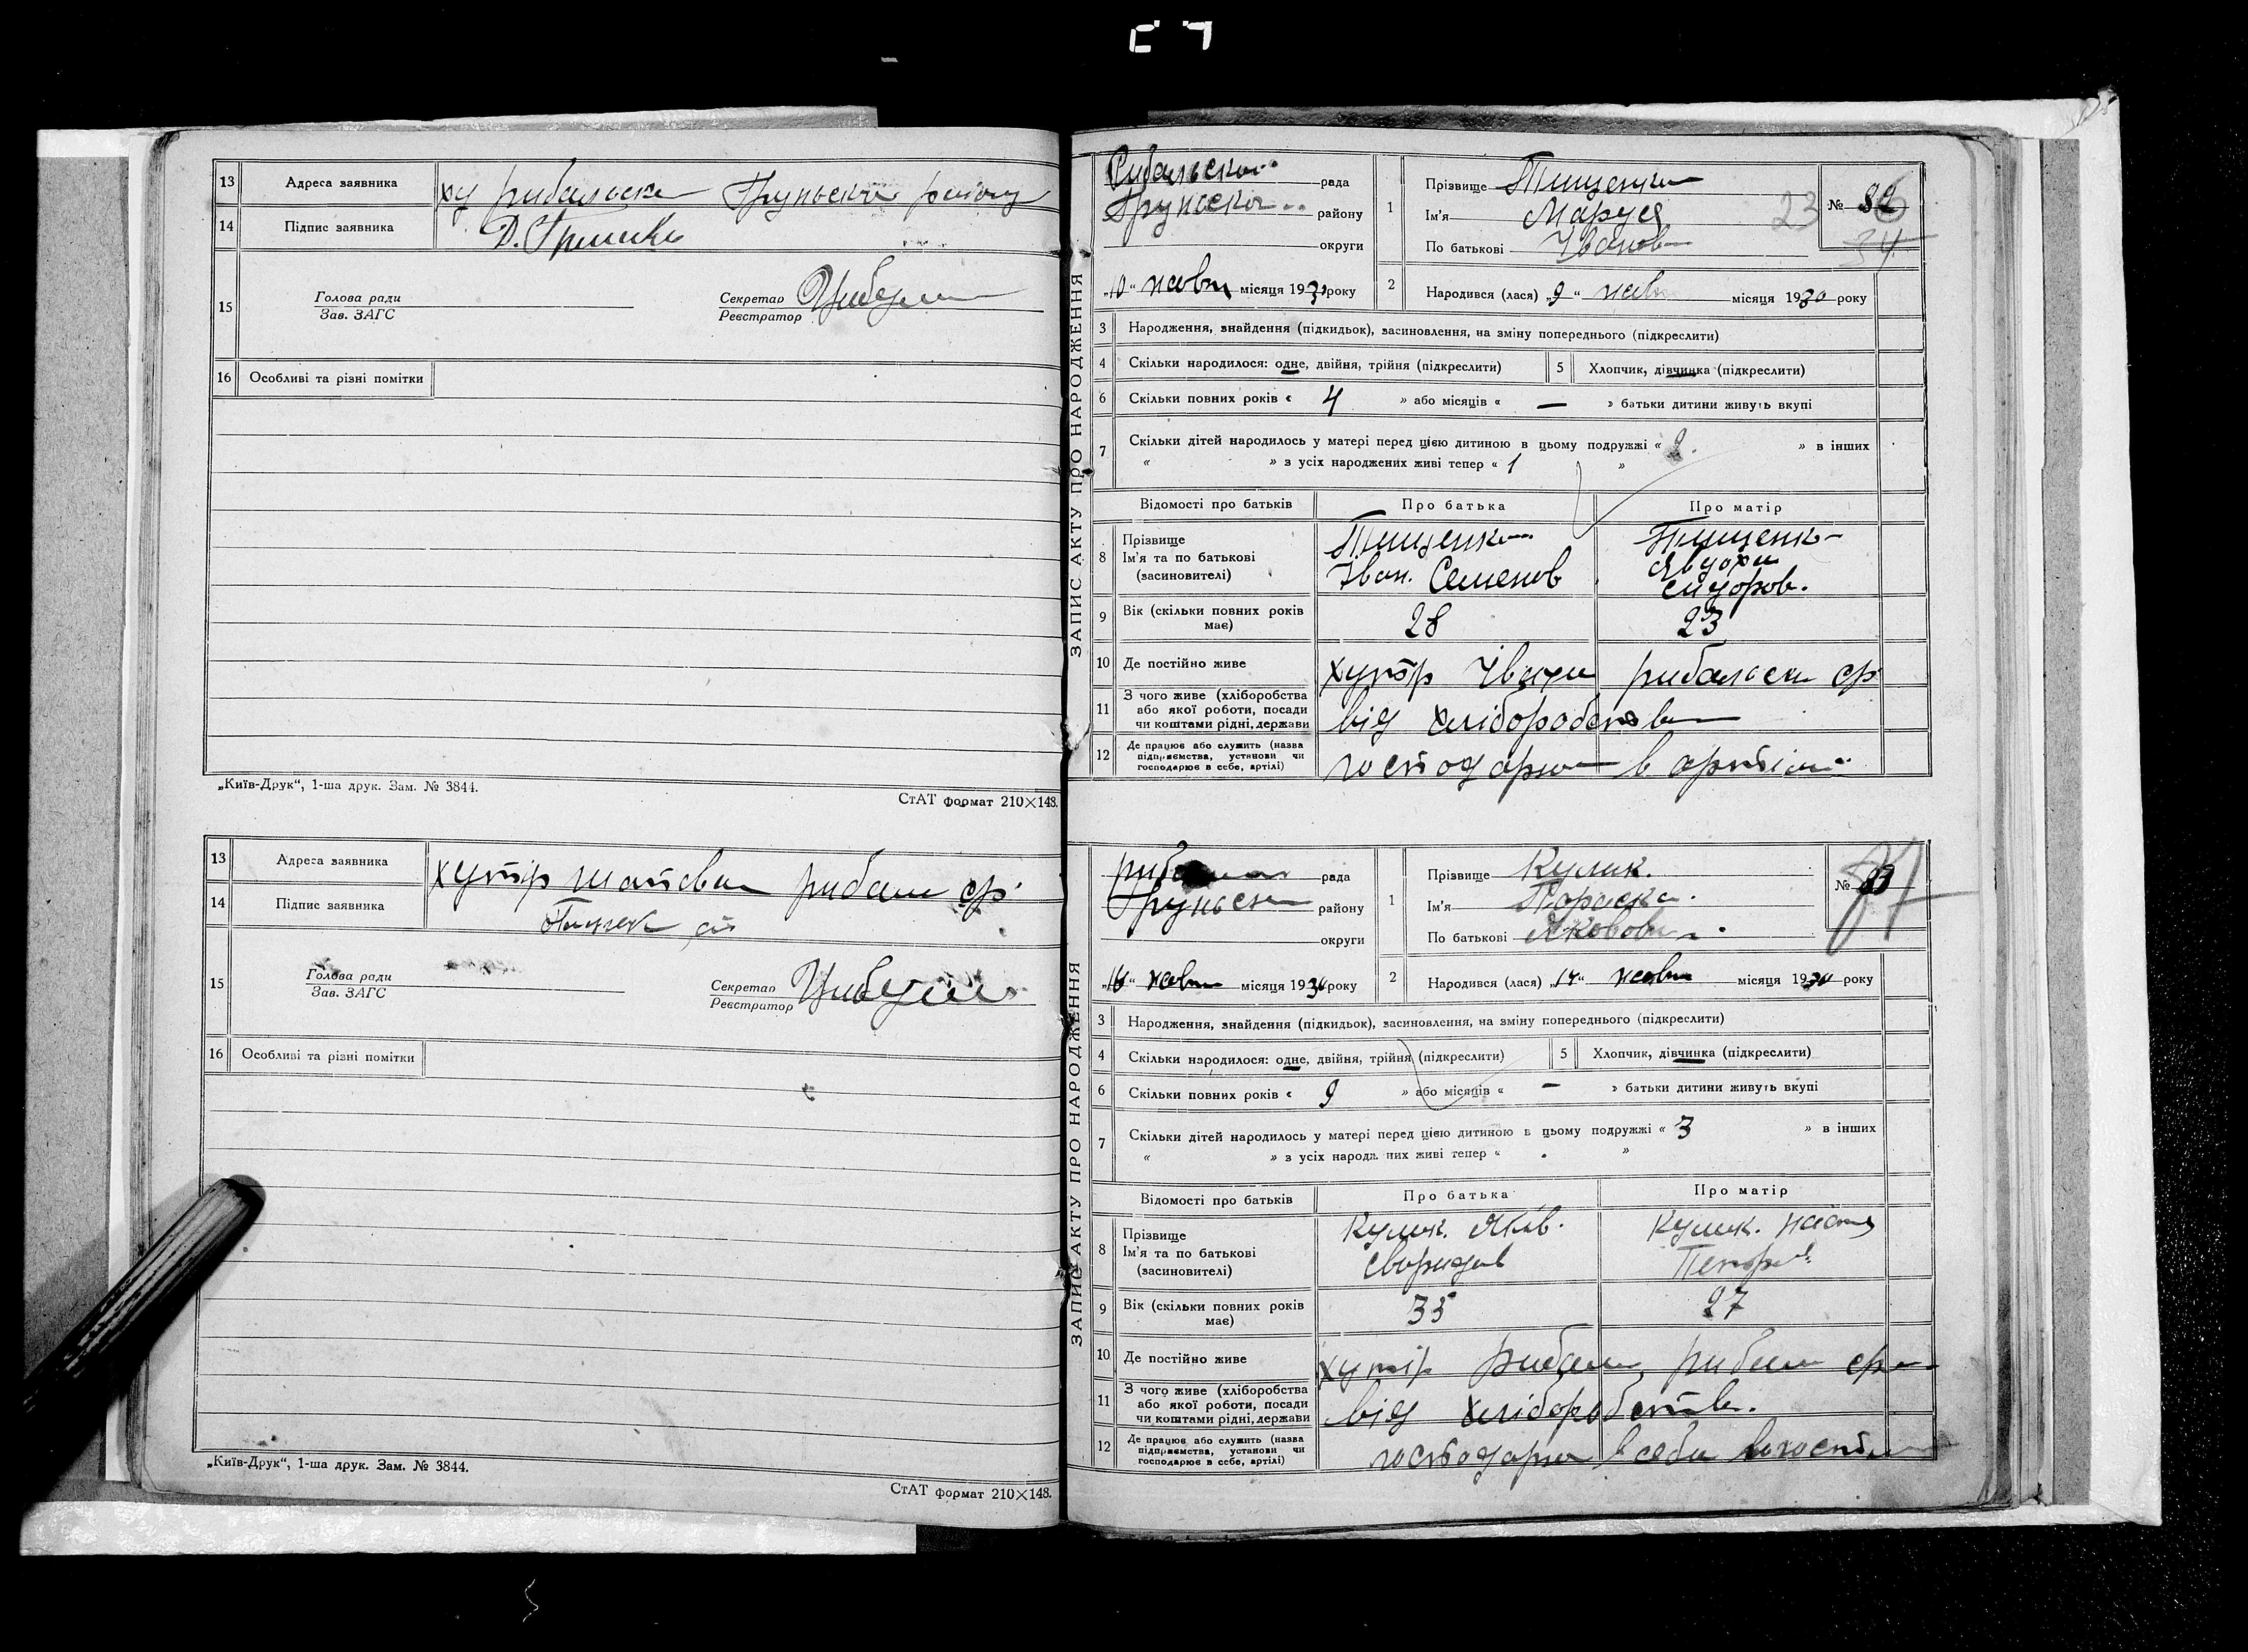 13 Адреса заявника ху рибальск Груньском району
14 Підпис заявника
15 Голова ради
Зав. ЗАГС
Секретар
Реєстратор
16 Особливі та різні помітки
„Київ-Друк“, 1-ша друк. Зам. № 3844.
СтАТ формат 210×148.
13 Адреса заявника хутір
14 Підпис заявника
15 Голова ради
Зав. ЗАГС
Секретар
Реєстратор
16 Особливі та різні помітки
„Київ-Друк“, 1-ша друк. Зам. № 3844.
СтАТ формат 210×148.
ЗАПИС АКТУ ПРО НАРОДЖЕННЯ
Рибальско рада
Груньско району
округи
„10“ жовт місяця 1930 року
1 Прізвище Тищенко
Ім'я Маруся
По батькові Іванов
23
№ 82
34
2 Народився (лася) „9“ жовт місяця 1930 року
3 Народження, знайдення (підкидьок), засиновлення, на зміну попереднього (підкреслити)
4 Скільки народилося: одне, двійня, трійня (підкреслити) 5 Хлопчик, дівчинка (підкреслити)
6 Скільки повних років « 4 » або місяців « — » батьки дитини живуть вкупі
7 Скільки дітей народилось у матері перед цією дитиною в цьому подружжі « 2 » в інших
« » з усіх народжених живі тепер « 1 »
Відомості про батьків Про батька Про матір
8 Прізвище
Ім'я та по батькові
(засиновителі)
Тищенко
Іван. Семенов
Тищенк
Явдоха
Сидоров.
9 Вік (скільки повних років має) 28 23
10 Де постійно живе хутір рибальськ ср
11 З чого живе (хліборобства або якої роботи, посади чи коштами рідні, держави від хліборобства
12 Де працює або служить (назва підприємства, установи чи господарює в себе, артілі) господарює в артіл
ЗАПИС АКТУ ПРО НАРОДЖЕННЯ
рада
Груньск району
округи
„16“ жовт місяця 1930 року
1 Прізвище Кулик.
Ім'я Параска.
По батькові Яковов
№ 83
2 Народився (лася) „14“ жовт місяця 1930 року
3 Народження, знайдення (підкидьок), засиновлення, на зміну попереднього (підкреслити)
4 Скільки народилося: одне, двійня, трійня (підкреслити) 5 Хлопчик, дівчинка (підкреслити)
6 Скільки повних років « 9 » або місяців « — » батьки дитини живуть вкупі
7 Скільки дітей народилось у матері перед цією дитиною в цьому подружжі « 3 » в інших
« » з усіх народж них живі тепер « »
Відомості про батьків Про батька Про матір
8 Прізвище
Ім'я та по батькові
(засиновителі)
Кулик. Яків.
Свиридов
Кулик. Настя
Петров
9 Вік (скільки повних років має) 35 27
10 Де постійно живе хутір рибал рибал ср
11 З чого живе (хліборобства або якої роботи, посади чи коштами рідні, держави від хліборобств.
12 Де працює або служить (назва підприємства, установи чи господарює в себе, артілі) господарює в себе